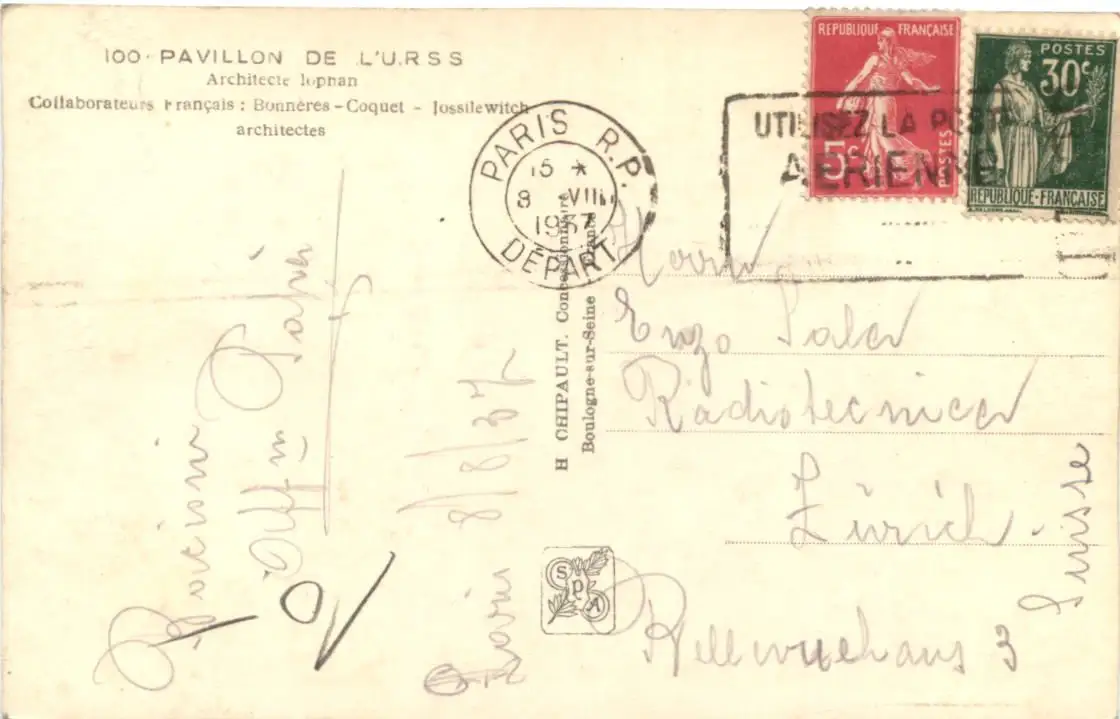 100. PAVILLON DE L'U.R.S.S
Architecte Iophan
Collaborateurs Français : Bonnères - Coquet - Jossilewitch
architectes
PARIS R.P.
15 *
8 VIII
1937
DÉPART
UTILISEZ LA POSTE
AÉRIENNE
REPUBLIQUE FRANÇAISE
5c
POSTES
POSTES
30c
REPUBLIQUE-FRANÇAISE
H CHIPAULT. Concessionnaire
Boulogne-sur-Seine France
SPA
8/8/37
Enzo
Radiotecnicer
Zürich
Suisse
3